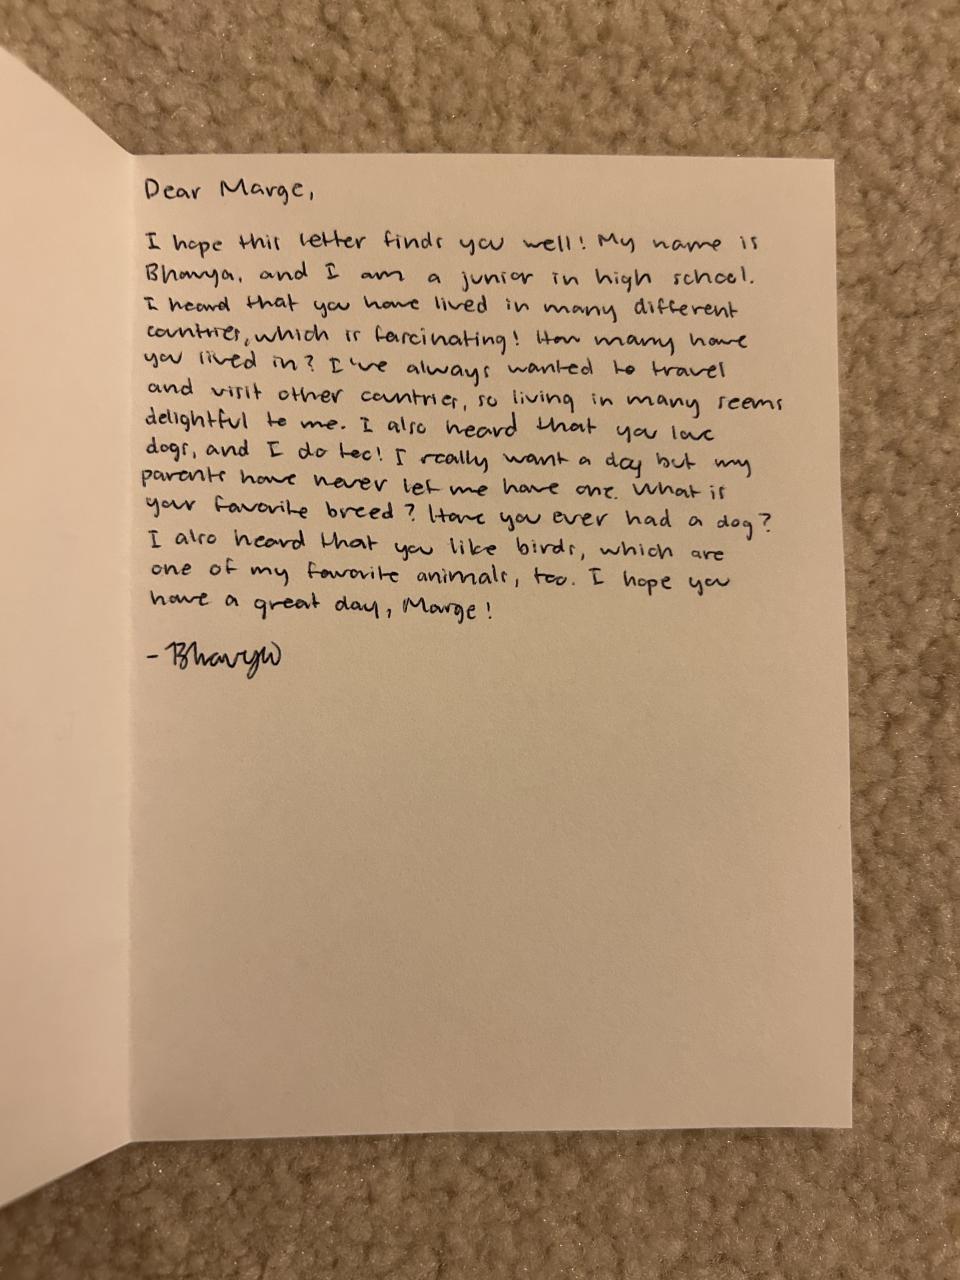 Dear Marge,
I hope this letter finds you well! My name is
Bhavya, and I am a junior in high school.
I heard that you have lived in many different
countries, which is fascinating! How many have
you lived in? I've always wanted to travel
and visit other countries, so living in many seems
delightful to me. I also heard that you love
dogs, and I do too! I really want a dog but my
parents have never let me have one. What is
your favorite breed? Have you ever had a dog?
I also heard that you like birds, which are
one of my favorite animals, too. I hope you
have a great day, Marge!
- Bhavya